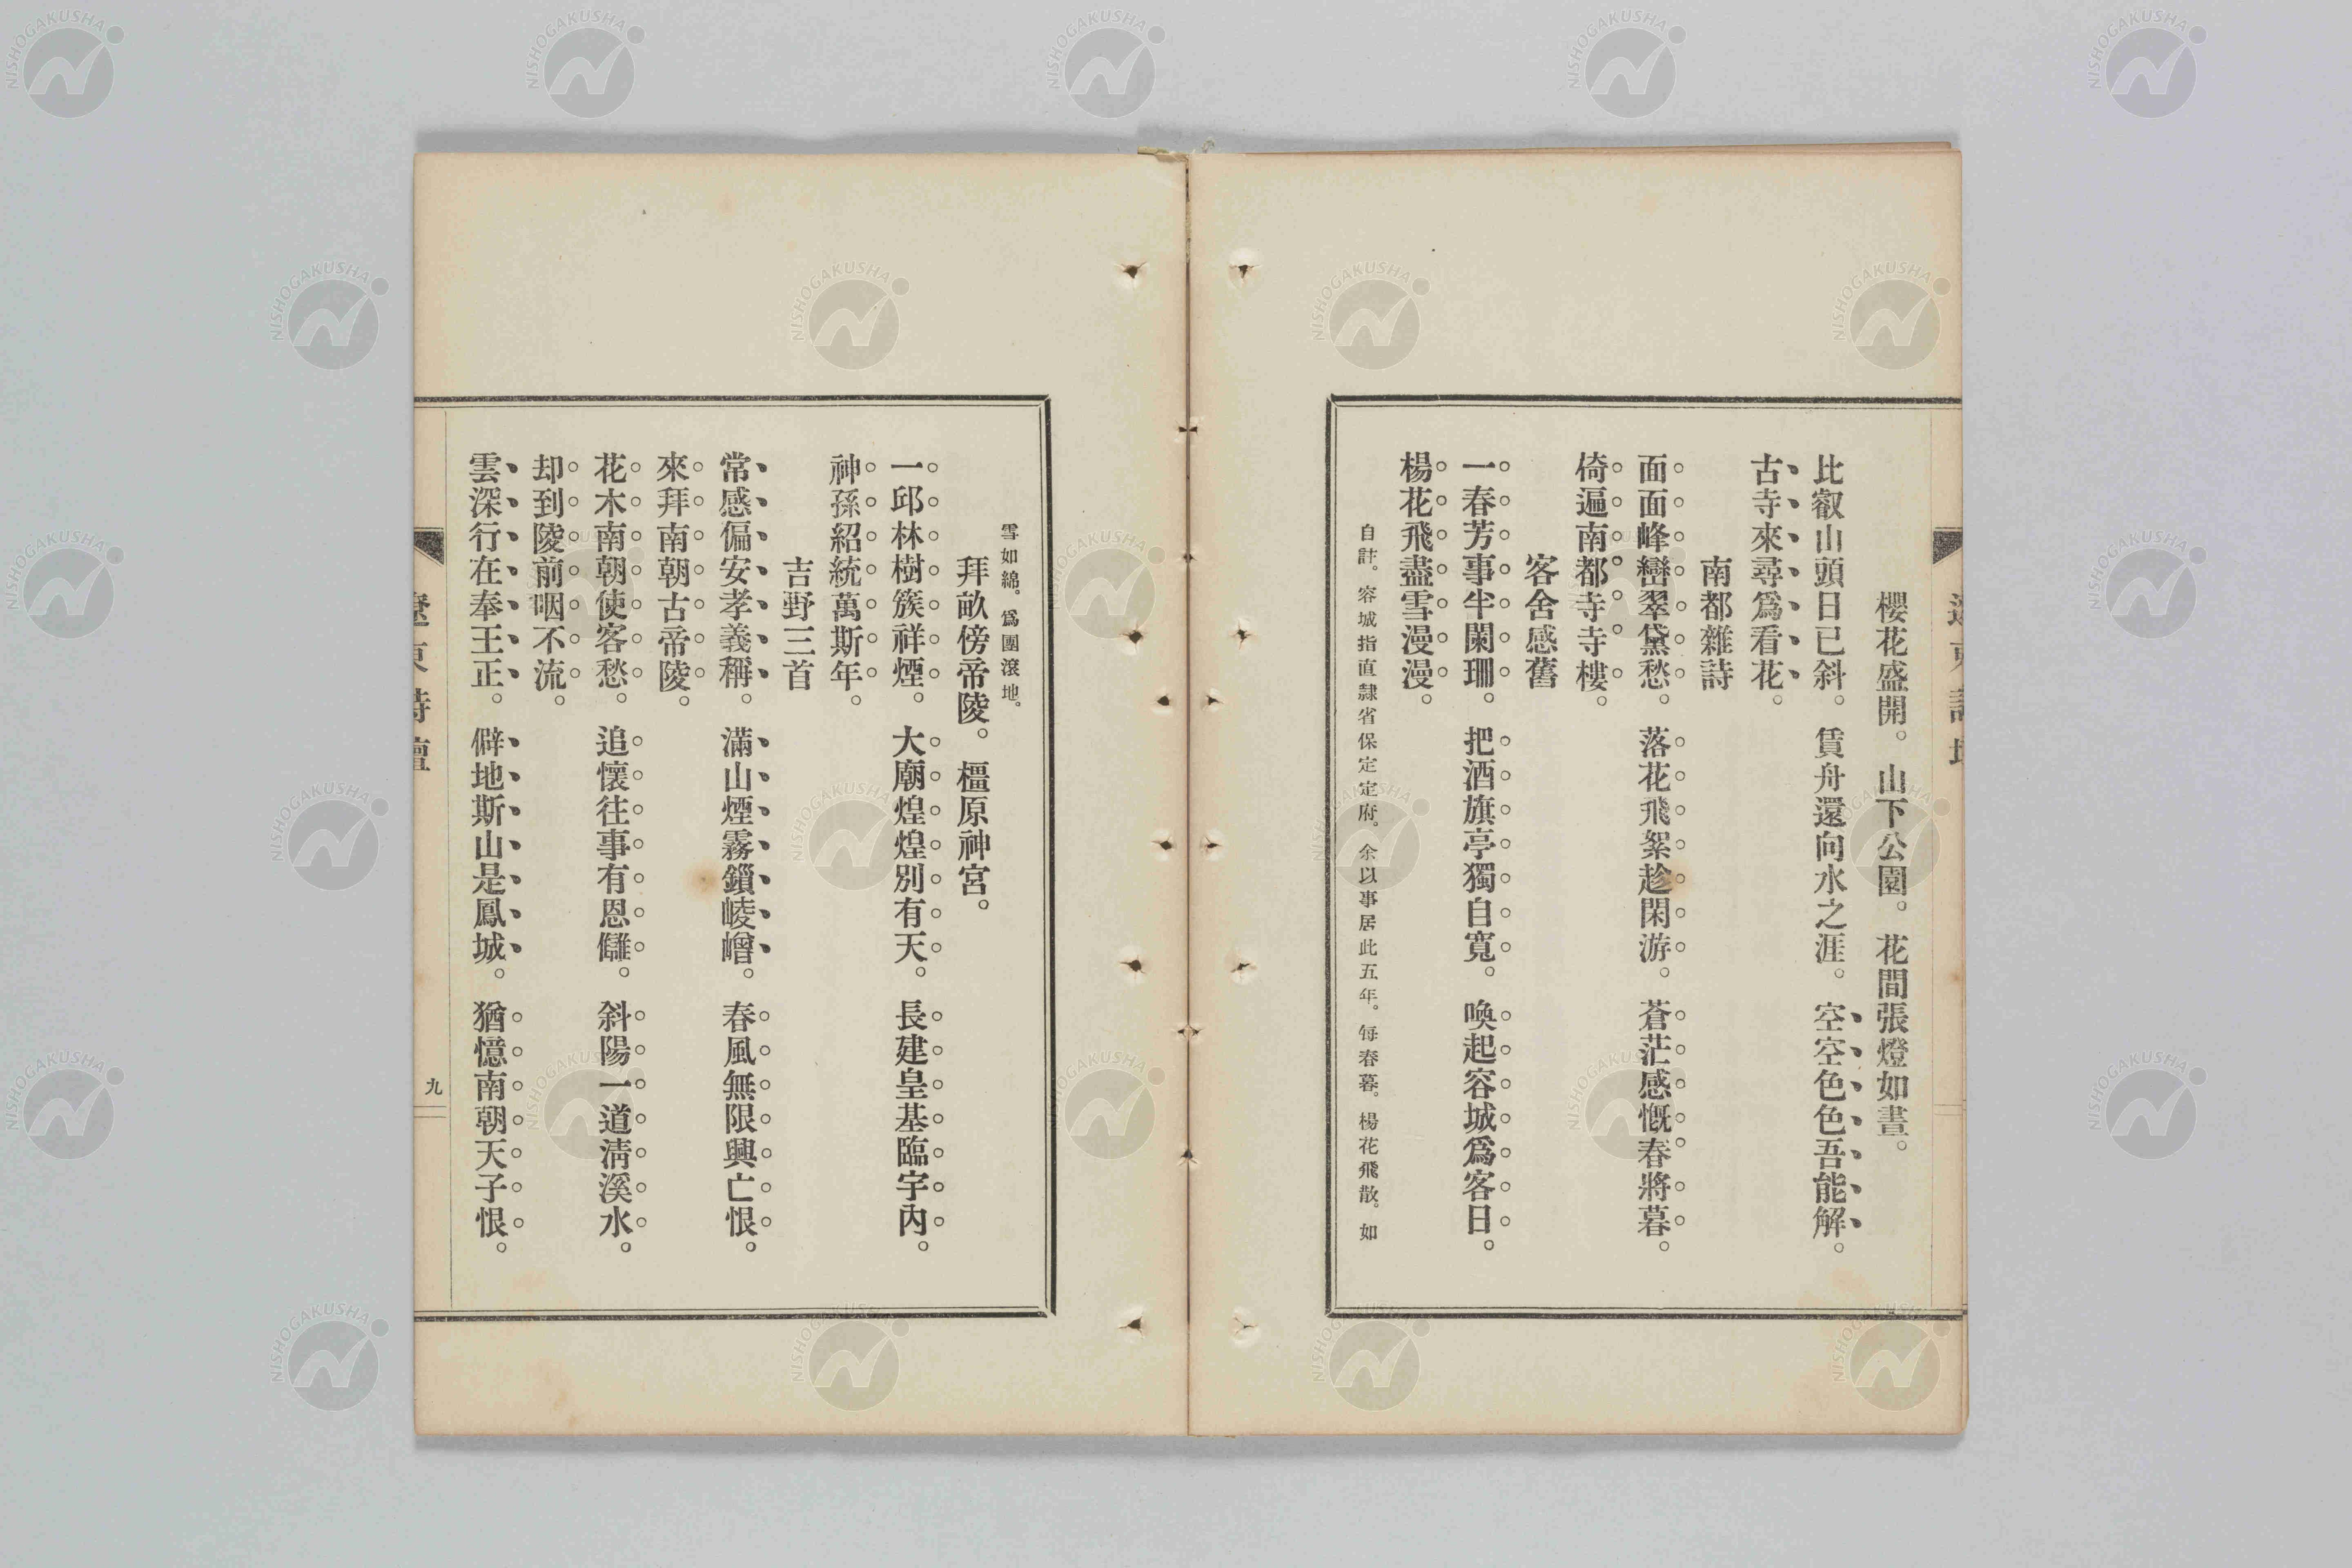 櫻花盛開。山下公園。花間張燈如晝。
比叡山頭日已斜。賃舟還向水之涯。空空色色吾能解。
古寺來尋爲看花。
南都雜詩
面面峰巒翠黛愁。落花飛絮趁閑游。蒼茫感慨春將暮。
倚遍南都寺寺樓。
客舍感舊
一春芳事半闌珊。把酒旗亭獨自寬。喚起容城爲客日。
楊花飛盡雪漫漫。
自註。容城指直隷省保定定府。余以事居此五年。每春暮。楊花飛散。如
雪如綿。爲團滾地。
拜畝傍帝陵。橿原神宮。
一邱林樹簇祥煙。大廟煌煌別有天。長建皇基臨宇內。
神孫紹統萬斯年。
吉野三首
常感偏安孝義稱。滿山煙霧鎻崚嶒。春風無限興亡恨。
來拜南朝古帝陵。
花木南朝使客愁。追懷往事有恩讎。斜陽一道淸溪水。
却到陵前咽不流。
雲深行在奉王正。僻地斯山是鳳城。猶憶南朝天子恨。
遼東詩壇
九
NISHOGAKUSHA